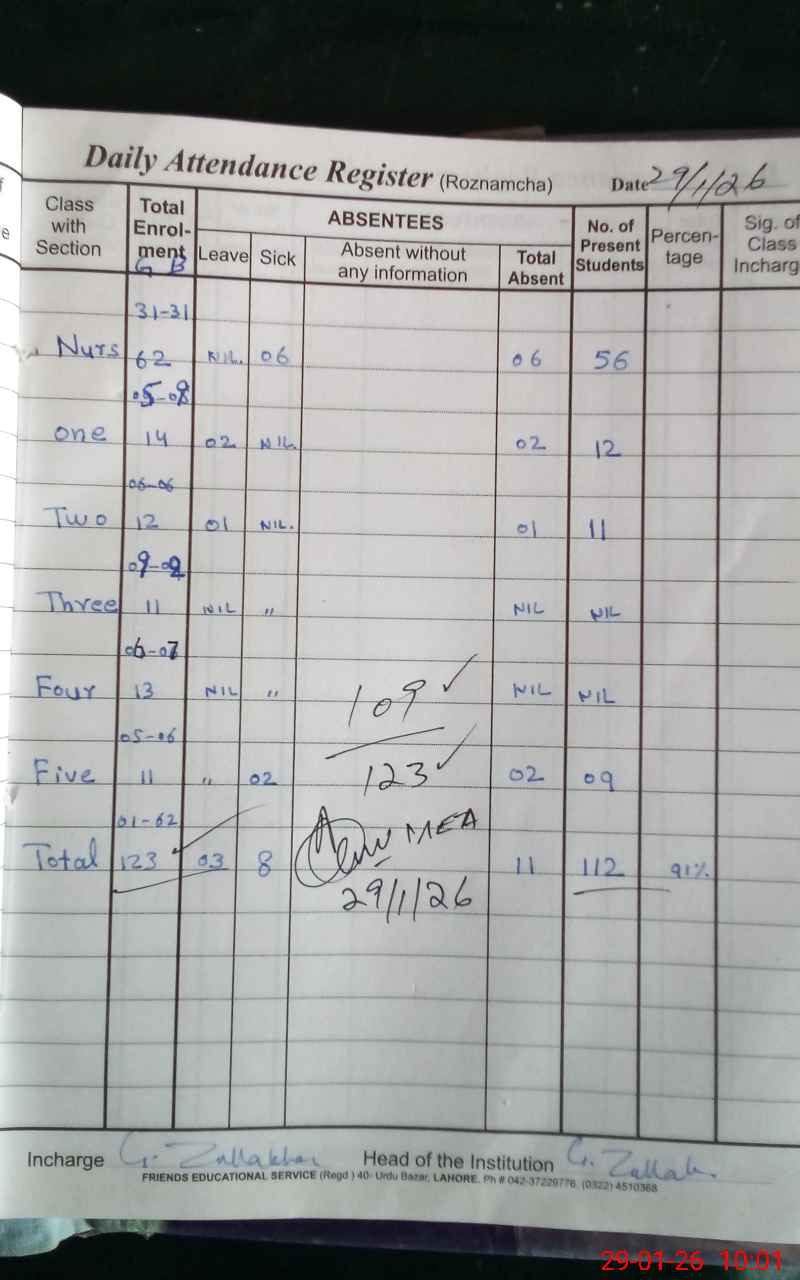 Daily Attendance Register (Roznamcha) Date 29/1/26
Class with Section Total Enrol-ment G B ABSENTEES Leave Sick Absent without any information Total Absent No. of Present Students Percen-tage Sig. of Class Incharg
31-31
Nurs 62 NIL. 06 06 56
05-09
one 14 02 NIL. 02 12
06-06
Two 12 01 NIL. 01 11
09-02
Three 11 NIL " NIL NIL
06-07
Four 13 NIL " NIL NIL
109
05-06
Five 11 " 02 123 02 09
01-62
MEA
Total 123 03 8 11 112 91%
29/1/26
Incharge G. Zullakhan Head of the Institution G. Zullakh.
FRIENDS EDUCATIONAL SERVICE (Regd ) 40- Urdu Bazar, LAHORE. Ph # 042-37229776, (0322) 4510368
29-01-26 10:01